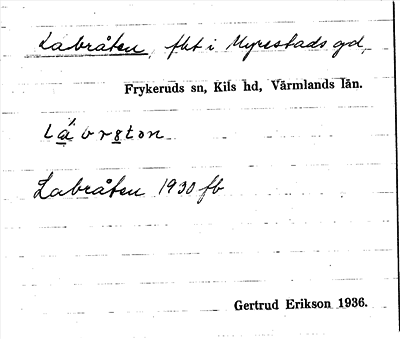 Labråten, fbt i Myrestads gd,
Frykeruds sn, Kils hd, Värmlands län.
Labråten 1930 fb
Gertrud Erikson 1936.